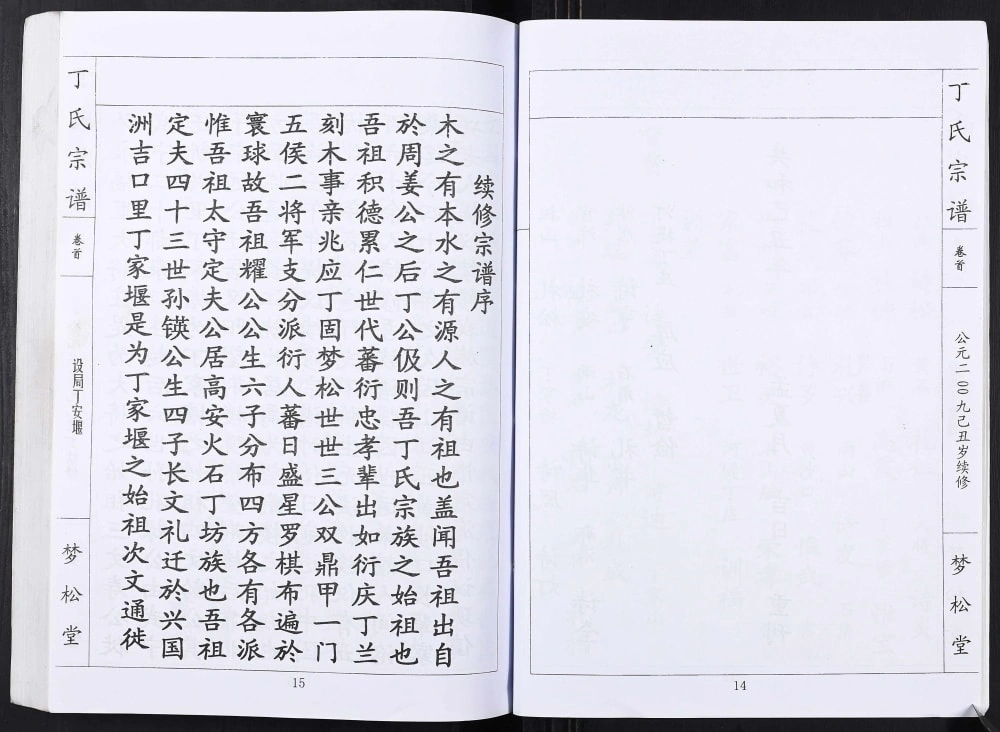 丁氏宗谱
卷首
公元二00九己丑岁续修
梦松堂
14
续修宗谱序
木之有本水之有源人之有祖也盖闻吾祖出自
於周姜公之后丁公伋则吾丁氏宗族之始祖也
吾祖积德累仁世代蕃衍忠孝辈出如衍庆丁兰
刻木事亲兆应丁固梦松世世三公双鼎甲一门
五侯二将军支分派衍人蕃日盛星罗棋布遍於
寰球故吾祖耀公公生六子分布四方各有各派
惟吾祖太守定夫公居高安火石丁坊族也吾祖
定夫四十三世孙锳公生四子长文礼迁於兴国
洲吉口里丁家堰是为丁家堰之始祖次文通徙
丁氏宗谱
卷首
设局丁安堰
梦松堂
15